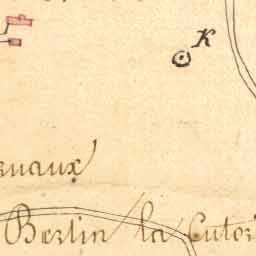 K
ruaux
Berlin la Cutor